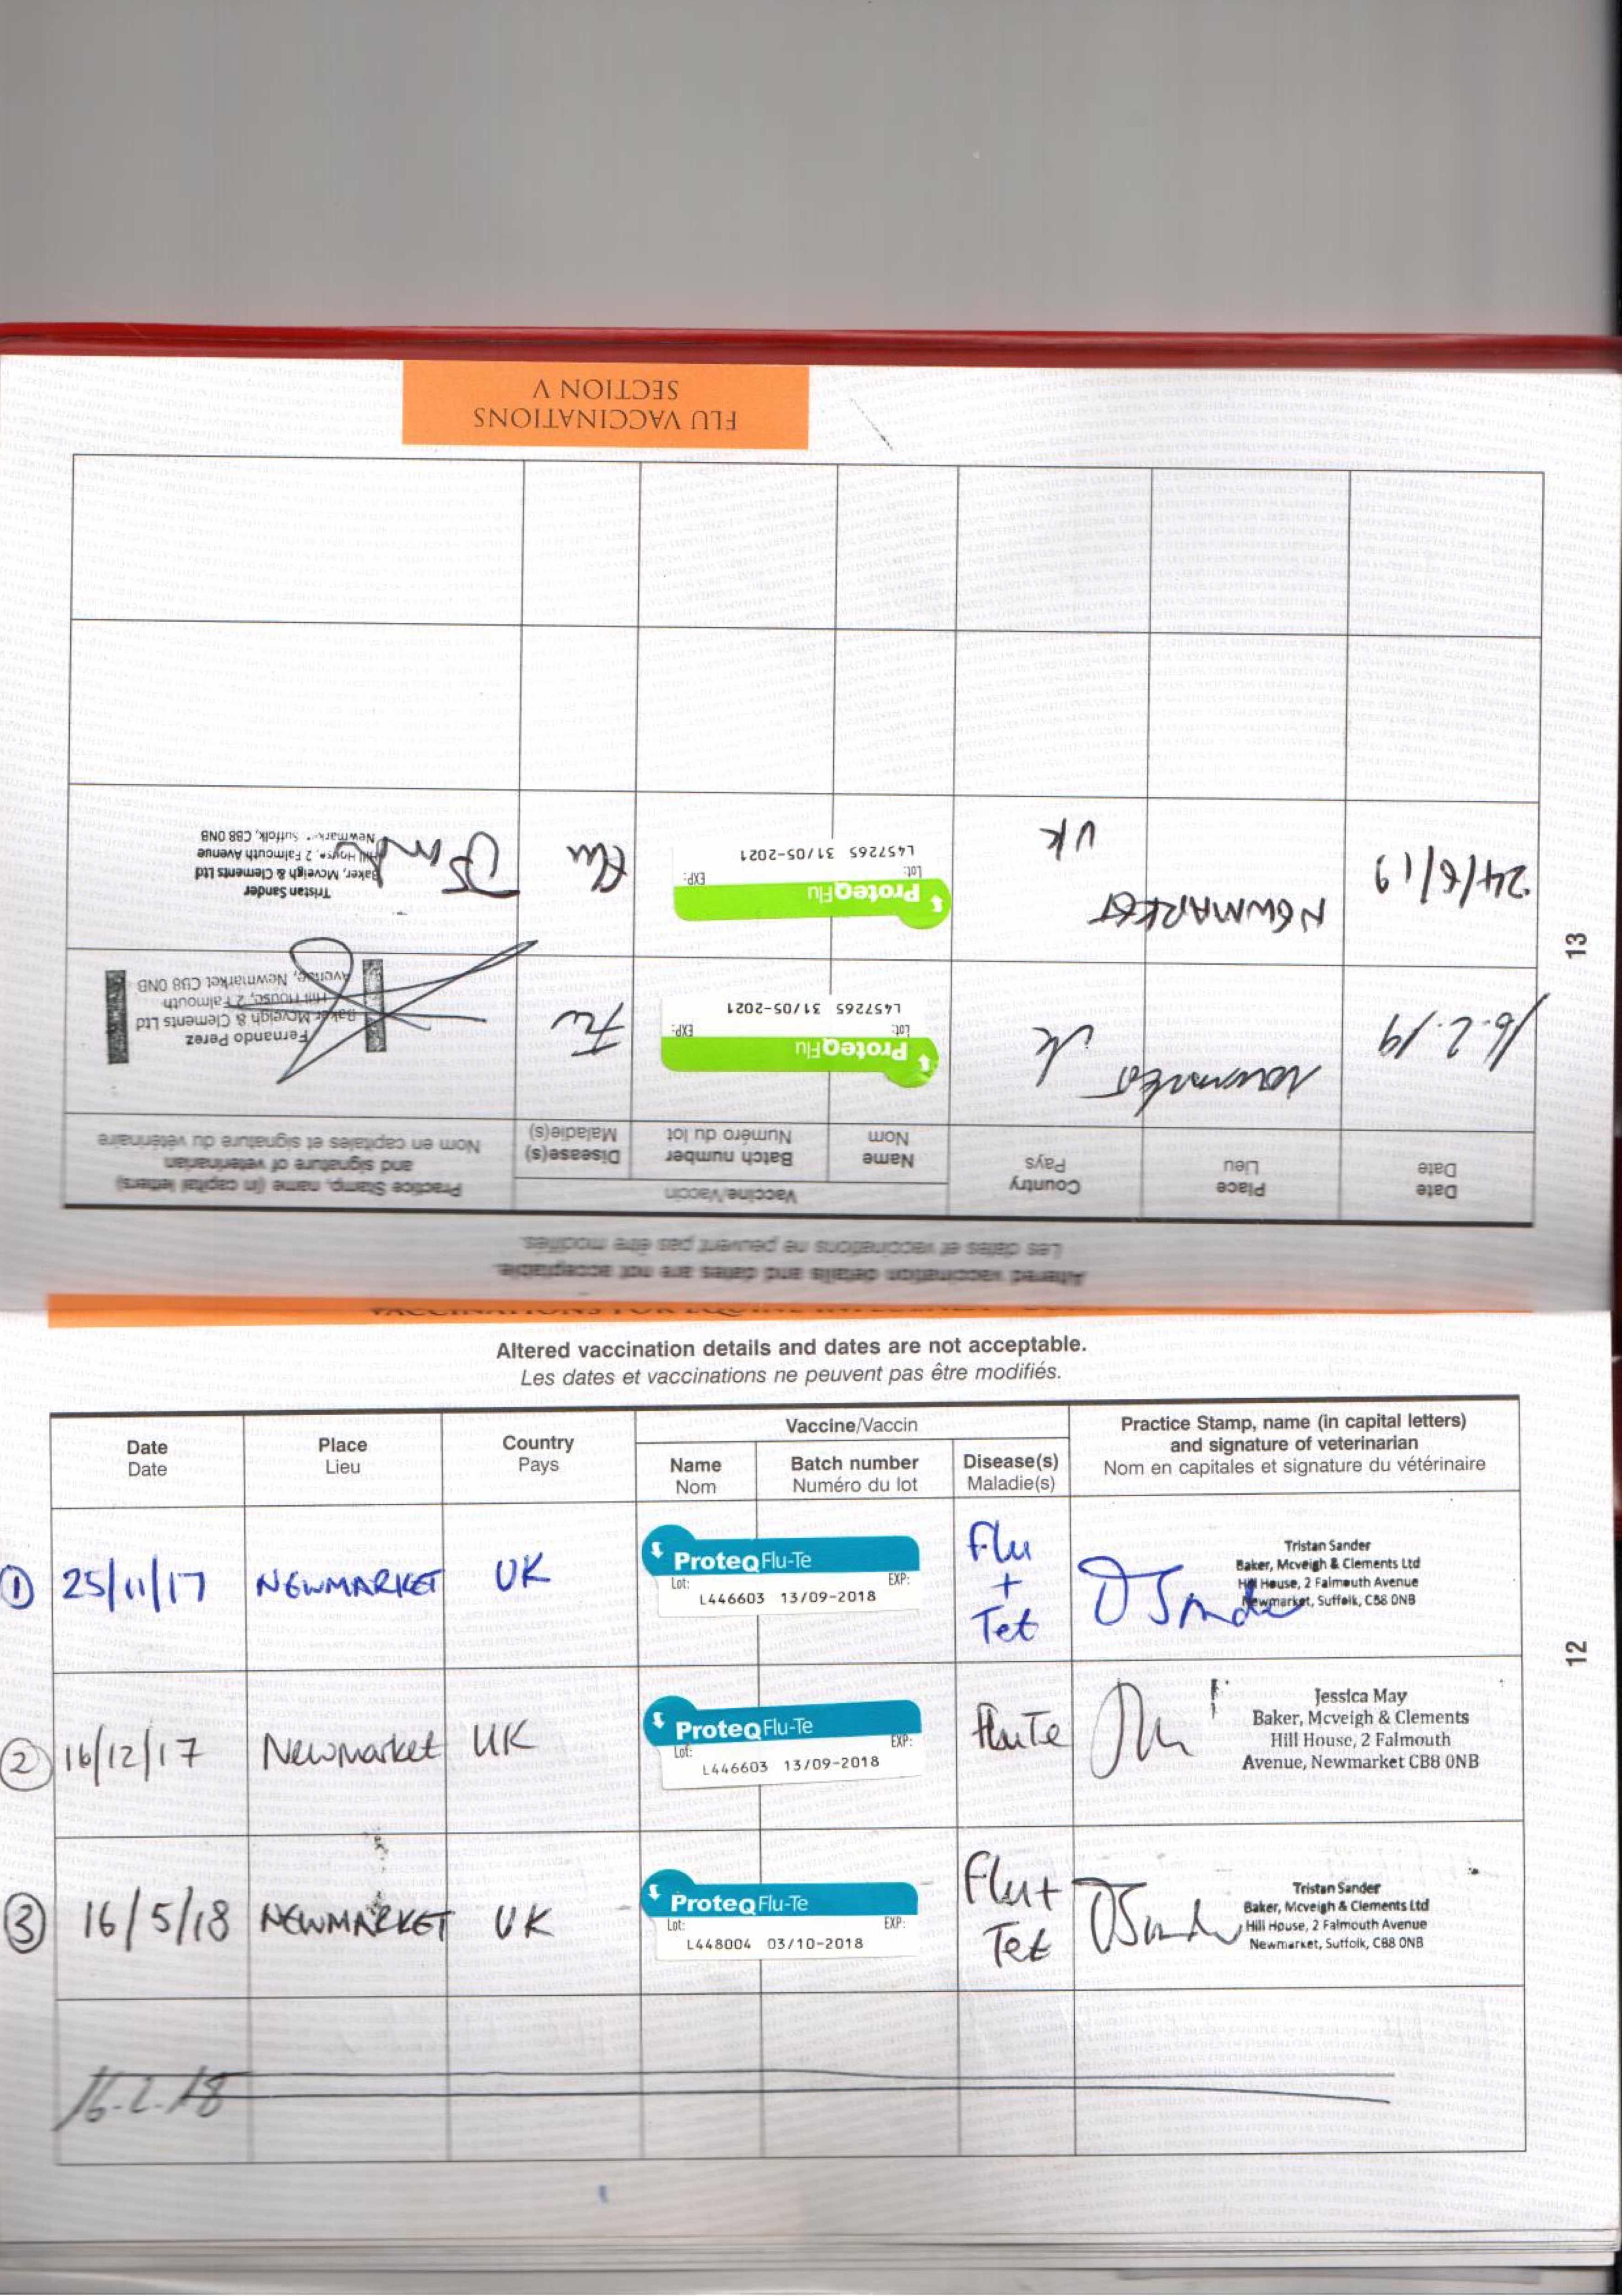 FLU VACCINATIONS
SECTION V
Altered vaccination details and dates are not acceptable.
Les dates et vaccinations ne peuvent pas être modifiés.
Date
Date
Place
Lieu
Country
Pays
Vaccine/Vaccin
Name
Nom
Batch number
Numéro du lot
Disease(s)
Maladie(s)
Practice Stamp, name (in capital letters)
and signature of veterinarian
Nom en capitales et signature du vétérinaire
16.2.19
Newmarket
UK
ProteqFlu
Lot: EXP:
L457265 31/05-2021
Flu
Fernando Perez
Baker Mcveigh & Clements Ltd
Hill House, 2 Falmouth
Avenue, Newmarket CB8 0NB
24/6/19
NEWMARKET
UK
ProteqFlu
Lot: EXP:
L457265 31/05-2021
Flu
Tristan Sander
Baker, Mcveigh & Clements Ltd
Hill House, 2 Falmouth Avenue
Newmarket, Suffolk, CB8 0NB
13
Altered vaccination details and dates are not acceptable.
Les dates et vaccinations ne peuvent pas être modifiés.
Date
Date
Place
Lieu
Country
Pays
Vaccine/Vaccin
Name
Nom
Batch number
Numéro du lot
Disease(s)
Maladie(s)
Practice Stamp, name (in capital letters)
and signature of veterinarian
Nom en capitales et signature du vétérinaire
1 25/11/17
NEWMARKET
UK
ProteqFlu-Te
Lot: EXP:
L446603 13/09-2018
Flu
+
Tet
Tristan Sander
Baker, Mcveigh & Clements Ltd
Hill House, 2 Falmouth Avenue
Newmarket, Suffolk, CB8 0NB
2 16/12/17
Newmarket
UK
ProteqFlu-Te
Lot: EXP:
L446603 13/09-2018
fluTe
Jessica May
Baker, Mcveigh & Clements
Hill House, 2 Falmouth
Avenue, Newmarket CB8 0NB
3 16/5/18
NEWMARKET
UK
ProteqFlu-Te
Lot: EXP:
L448004 03/10-2018
Flu+
Tet
Tristan Sander
Baker, Mcveigh & Clements Ltd
Hill House, 2 Falmouth Avenue
Newmarket, Suffolk, CB8 0NB
16.2.18
12